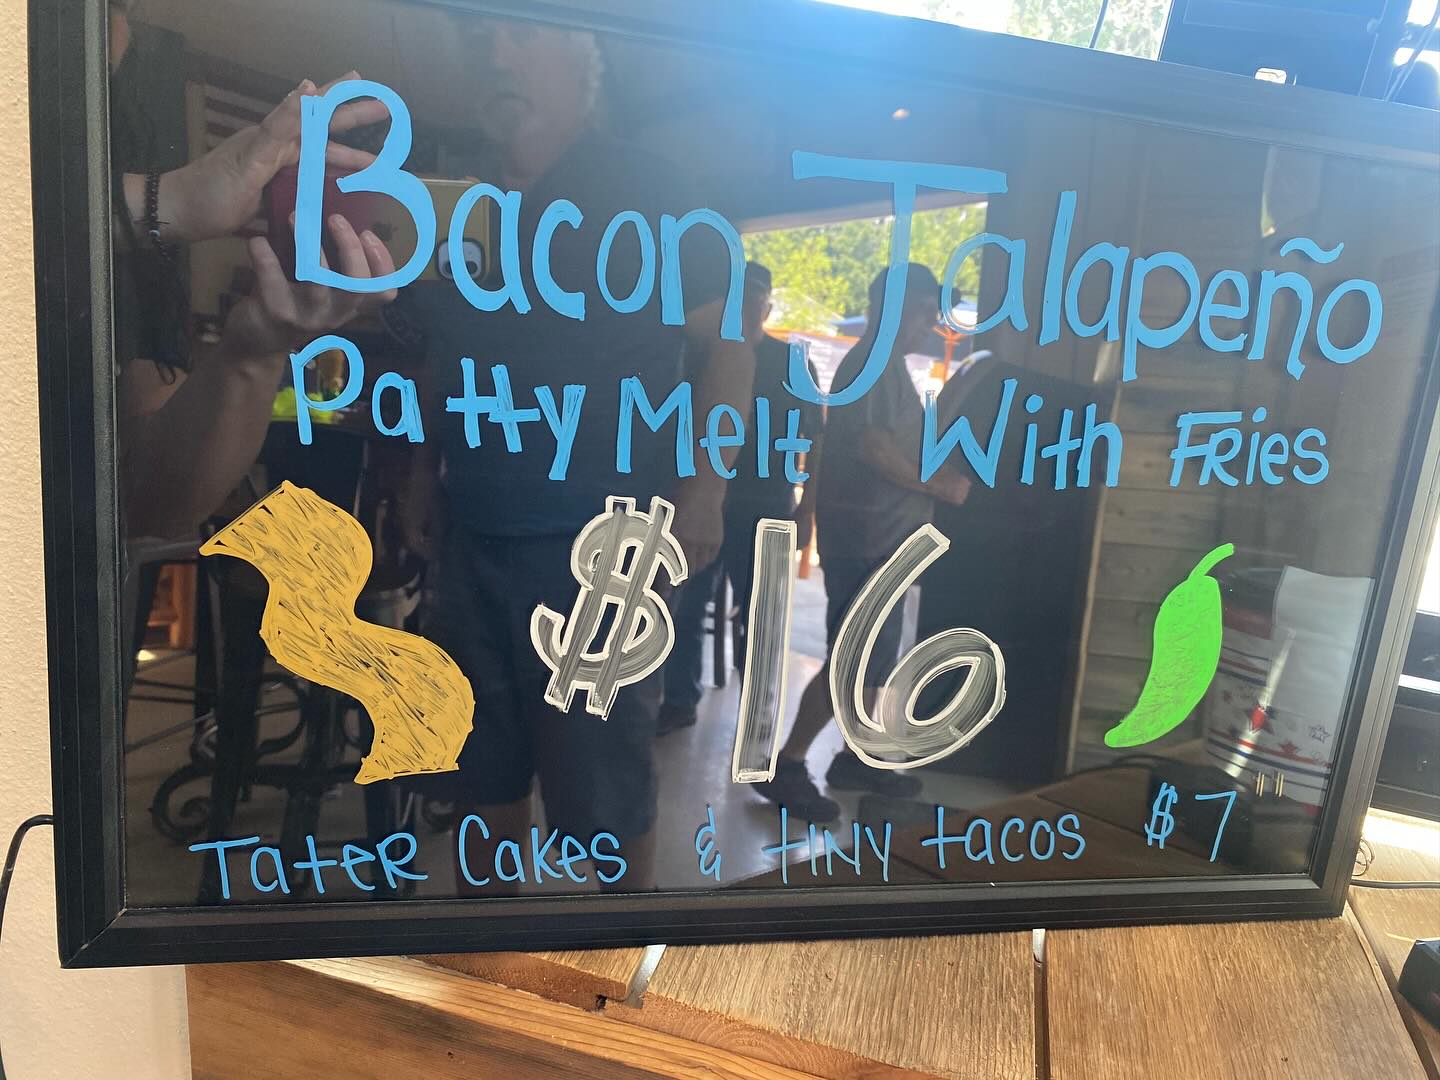 Bacon Jalapeño
Patty Melt With Fries
$16
Tater Cakes & tiny tacos $7